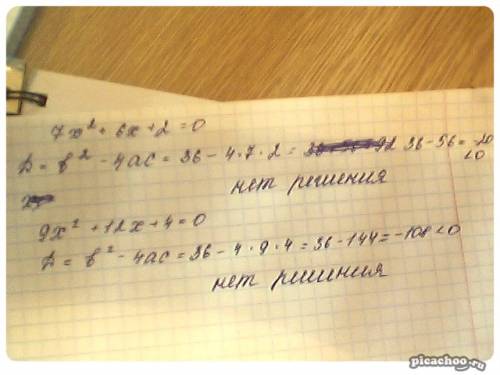 7x² + 6x + 2 = 0
D = b² - 4ac = 36 - 4·7·2 = 36 - 56 = -20 < 0
нет решения
9x² + 12x + 4 = 0
D = b² - 4ac = 36 - 4·9·4 = 36 - 144 = -108 < 0
нет решения
picachoo.ru